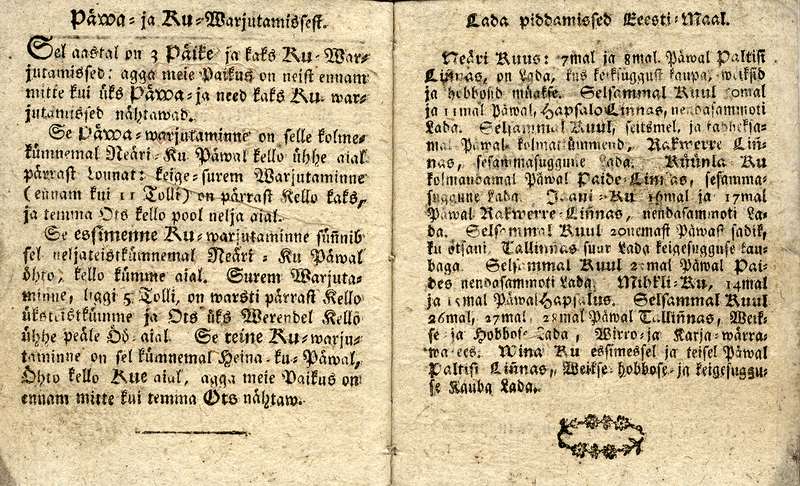 Päwa- ja Ku-Warjutamissest.
Sel aastal on 3 Päike ja kaks Ku-War-
jutamissed: agga meie Paikus on neist ennam
mitte kui üks Päwa- ja need kaks Ku war-
jutamissed nähtawad.
Se Päwa-warjutaminne on selle kolme-
kümnemal Neäri-Ku Päwal kello ühhe aial
pärrast Lounat: keige-surem Warjutaminne
(ennam kui 11 Tolli) on pärrast Kello kaks,
ja temma Ots kello pool nelja aial.
Se essimenne Ku-warjutaminne sünnib
sel neljateistkümnemal Neäri-Ku Päwal
öhto, kello kümme aial. Surem Warjuta-
minne, liggi 5 Tolli, on warsti pärrast Kello
üksteistkümme ja Ots üks Werendel Kello
ühhe peäle Öö-aial. Se teine Ku-warju-
taminne on sel kümnemal Heina-ku-Päwal,
Öhto kello Kue aial, agga meie Paikus on
ennam mitte kui temma Ots nähtaw.
Lada piddamissed Eesti-Maal.
Neäri Kuus: 7mal ja 8mal Päwal Paltisi
Liñnas, on Lada, kus keiksuggust kaupa, weiksid
ja hobbosid müakse. Selsammal Kuul 10mal
ja 11mal Päwal, Hapsalo Linnas, nendasammoti
Lada. Selsammal Kuul, seitsmel, ja
mal Päwal kolmatkümmend, Rakwerre Liñ-
nas, sesammasuggune Lada. Küünla Ku
kolmandamal Päwal Paide-Linnas, sesamma-
suggune Lada. Jaani-Ku 16mal ja 17mal
Päwal Rakwerre-Liñnas, nendasammoti La-
da. Selsammal Kuul 20nemast Päwast sadik,
ku otsani, Tallinnas suur Lada keigesugguse kau-
baga. Selsammal Kuul mal Päwal Pai-
des nendasammoti Lada. Mihkli-Ku, 14mal
ja 15mal Päwal Hapsalus. Selsammal Kuul
26mal, 27mal, 28mal Päwal Talliñnas, Weik-
se-ja Hobbose-Lada, Wirro-ja Karja-wärra-
wa ees. Wina Ku essimessel ja teisel Päwal
Paltisi Liñnas, Weikse-hobbose-ja keigesuggu-
se Kauba Lada.